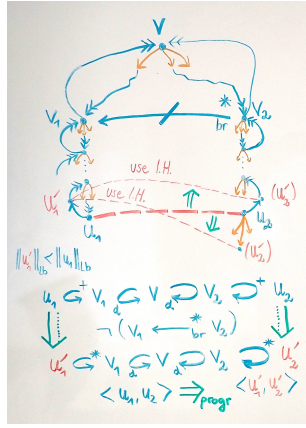 V
V₁ * br V₂
use I.H.
u₁′ use I.H. (u₂′)
u₁ ⇑ u₂
⇓
(u₂′)
‖u₁′‖ₗb < ‖u₁‖ₗb
u₁ ↶⁺ V₁ d↶ V ↷d V₂ ↷⁺ u₂
¬(V₁ ←* br V₂)
u₁′ ↶* V₁ d↶ V ↷d V₂ ↷* u₂′
<u₁, u₂> ⇒progr <u₁′, u₂′>